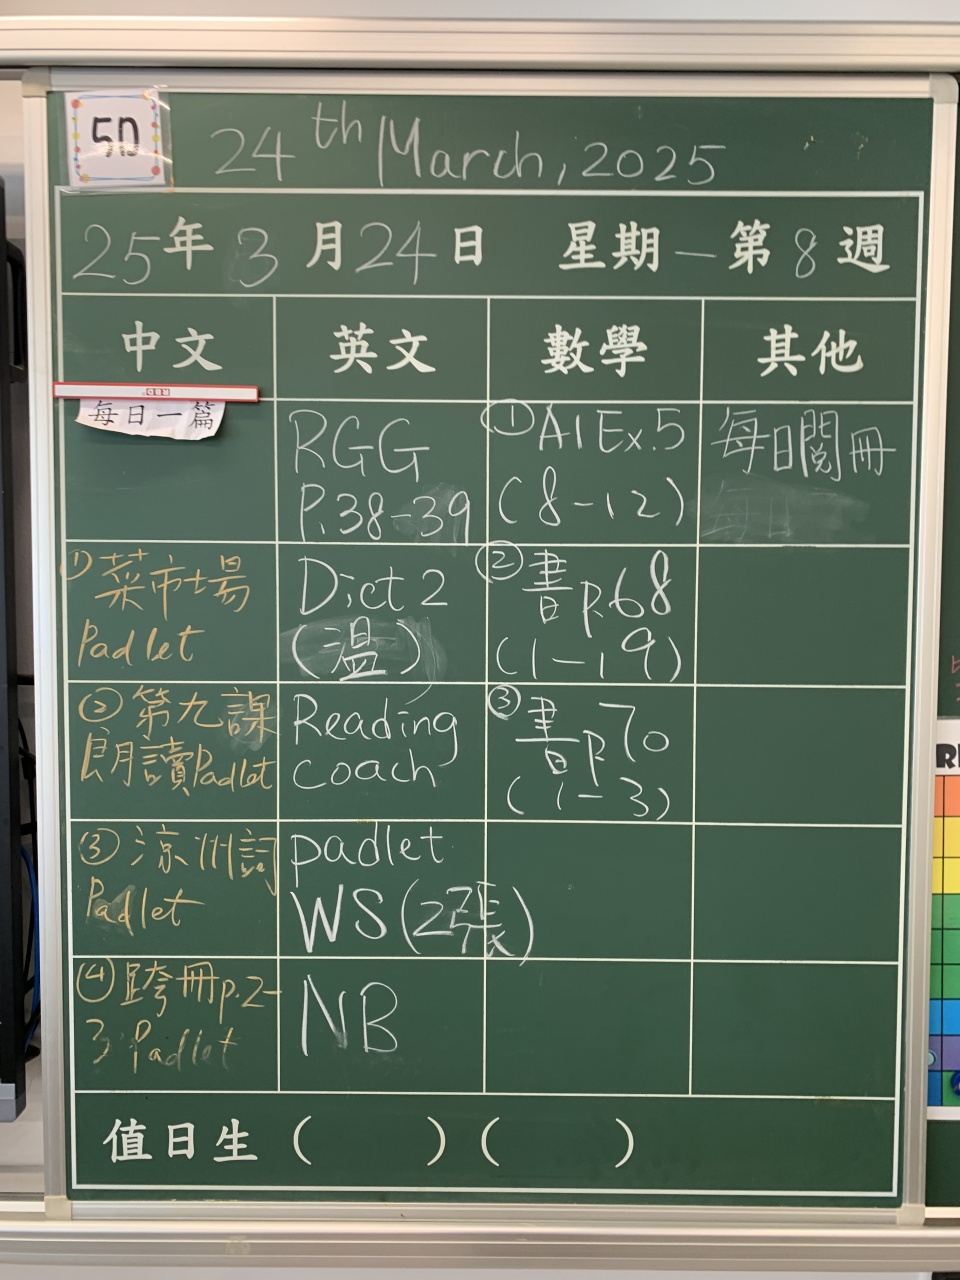 5D
24th March, 2025
25年3月24日 星期一第8週
中文 英文 數學 其他
每日一篇
RGG
P.38-39
① A1 Ex.5
(8-12)
每日閱冊
①菜市場
Padlet
Dict 2
(溫)
② 書p.68
(1-19)
②第九課
朗讀Padlet
Reading
coach
③ 書p70
(1-3)
③涼州詞
Padlet
padlet
WS(2張)
④跨冊p.2-
3 Padlet
NB
值日生 ( ) ( )